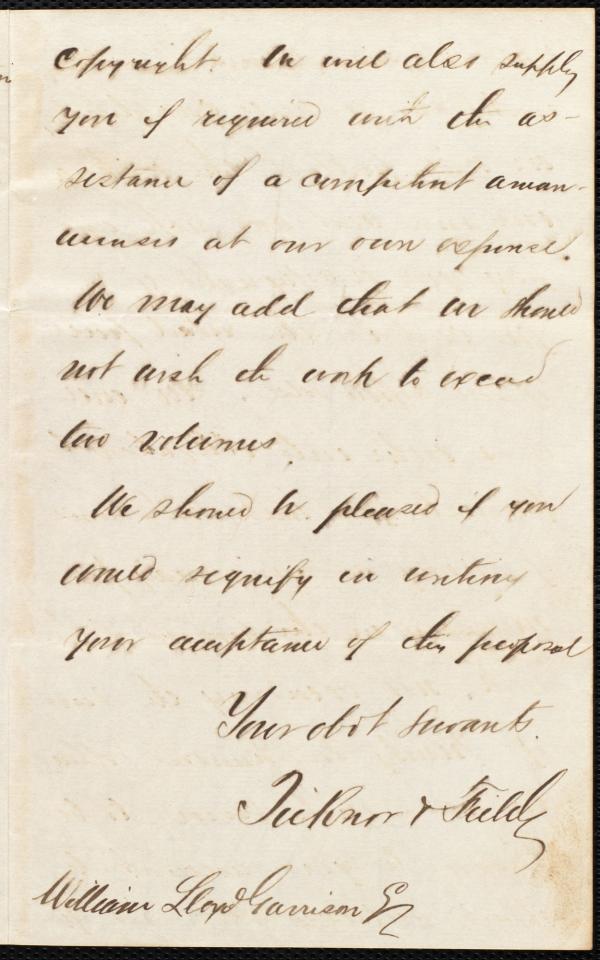 copyright. We will also supply
you if required with the as-
sistance of a competent aman-
uensis at our own expense.
We may add that we should
not wish the work to exceed
two volumes.
We should be pleased if you
would signify in writing
your acceptance of this proposal
Your obdt servants.
Ticknor & Fields
William Lloyd Garrison Esq